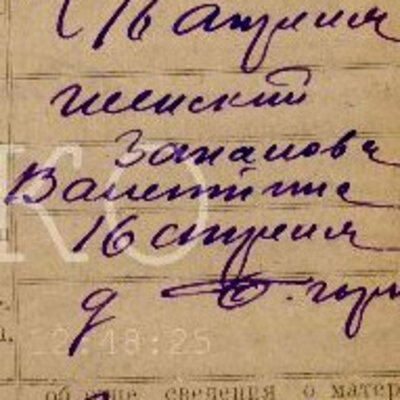 (16 апреля
женский
Запанова
Валентина
16 апреля
д
12:48:25
общие сведения о матер